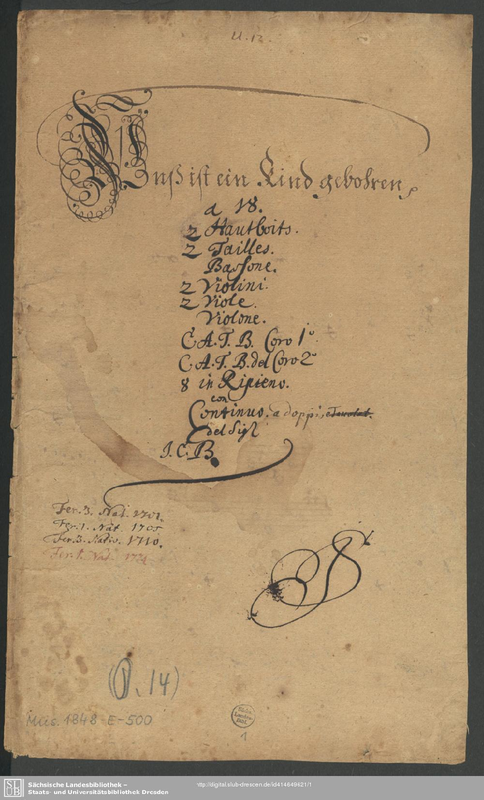 U. 12.
Unß ist ein Kind gebohren
a 18.
2 Hautbois.
2 Tailles.
Bassone.
2 Violini.
2 Viole.
Violone.
C. A. T. B. Coro 1º
C. A. T. B. del Coro 2º
8 in Ripieno.
con
Continuo. a doppio
del Sigl
J. C. B.
Fer. 3. Nat. 1701.
Fer. 1. Nat. 1705
Fer. 3. Nativ. 1710.
Fer. 1. Nat.
(V. 14)
Mus. 1848 E-500
1
SLUB
Sächsische Landesbibliothek –
Staats- und Universitätsbibliothek Dresden
http://digital.slub-dresden.de/id414649421/1